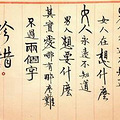 女人在想什麼
女人永遠不知道
男人想要什麼
其實愛哪有那麼難
不過兩個字
珍惜。